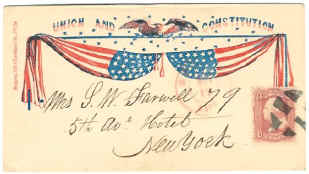 UNION AND CONSTITUTION
Mrs S. W. Farwell 79
5th Av? Hotel
New York